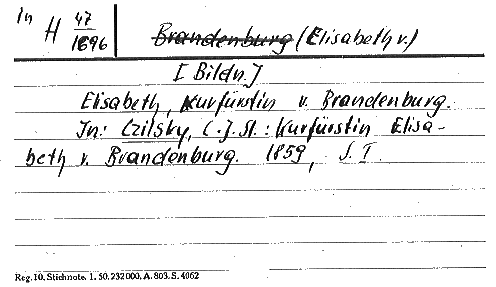 In H 47/1896 ~~Brandenburg~~ (Elisabeth v.)
[Bildn.]
Elisabeth, Kurfürstin v. Brandenburg.
In: Czilsky, C. J. St.: Kurfürstin Elisa-
beth v. Brandenburg. 1859, S. I.
Reg. 10. Stichnote. 1. 50. 232 000. A. 803. S. 4062